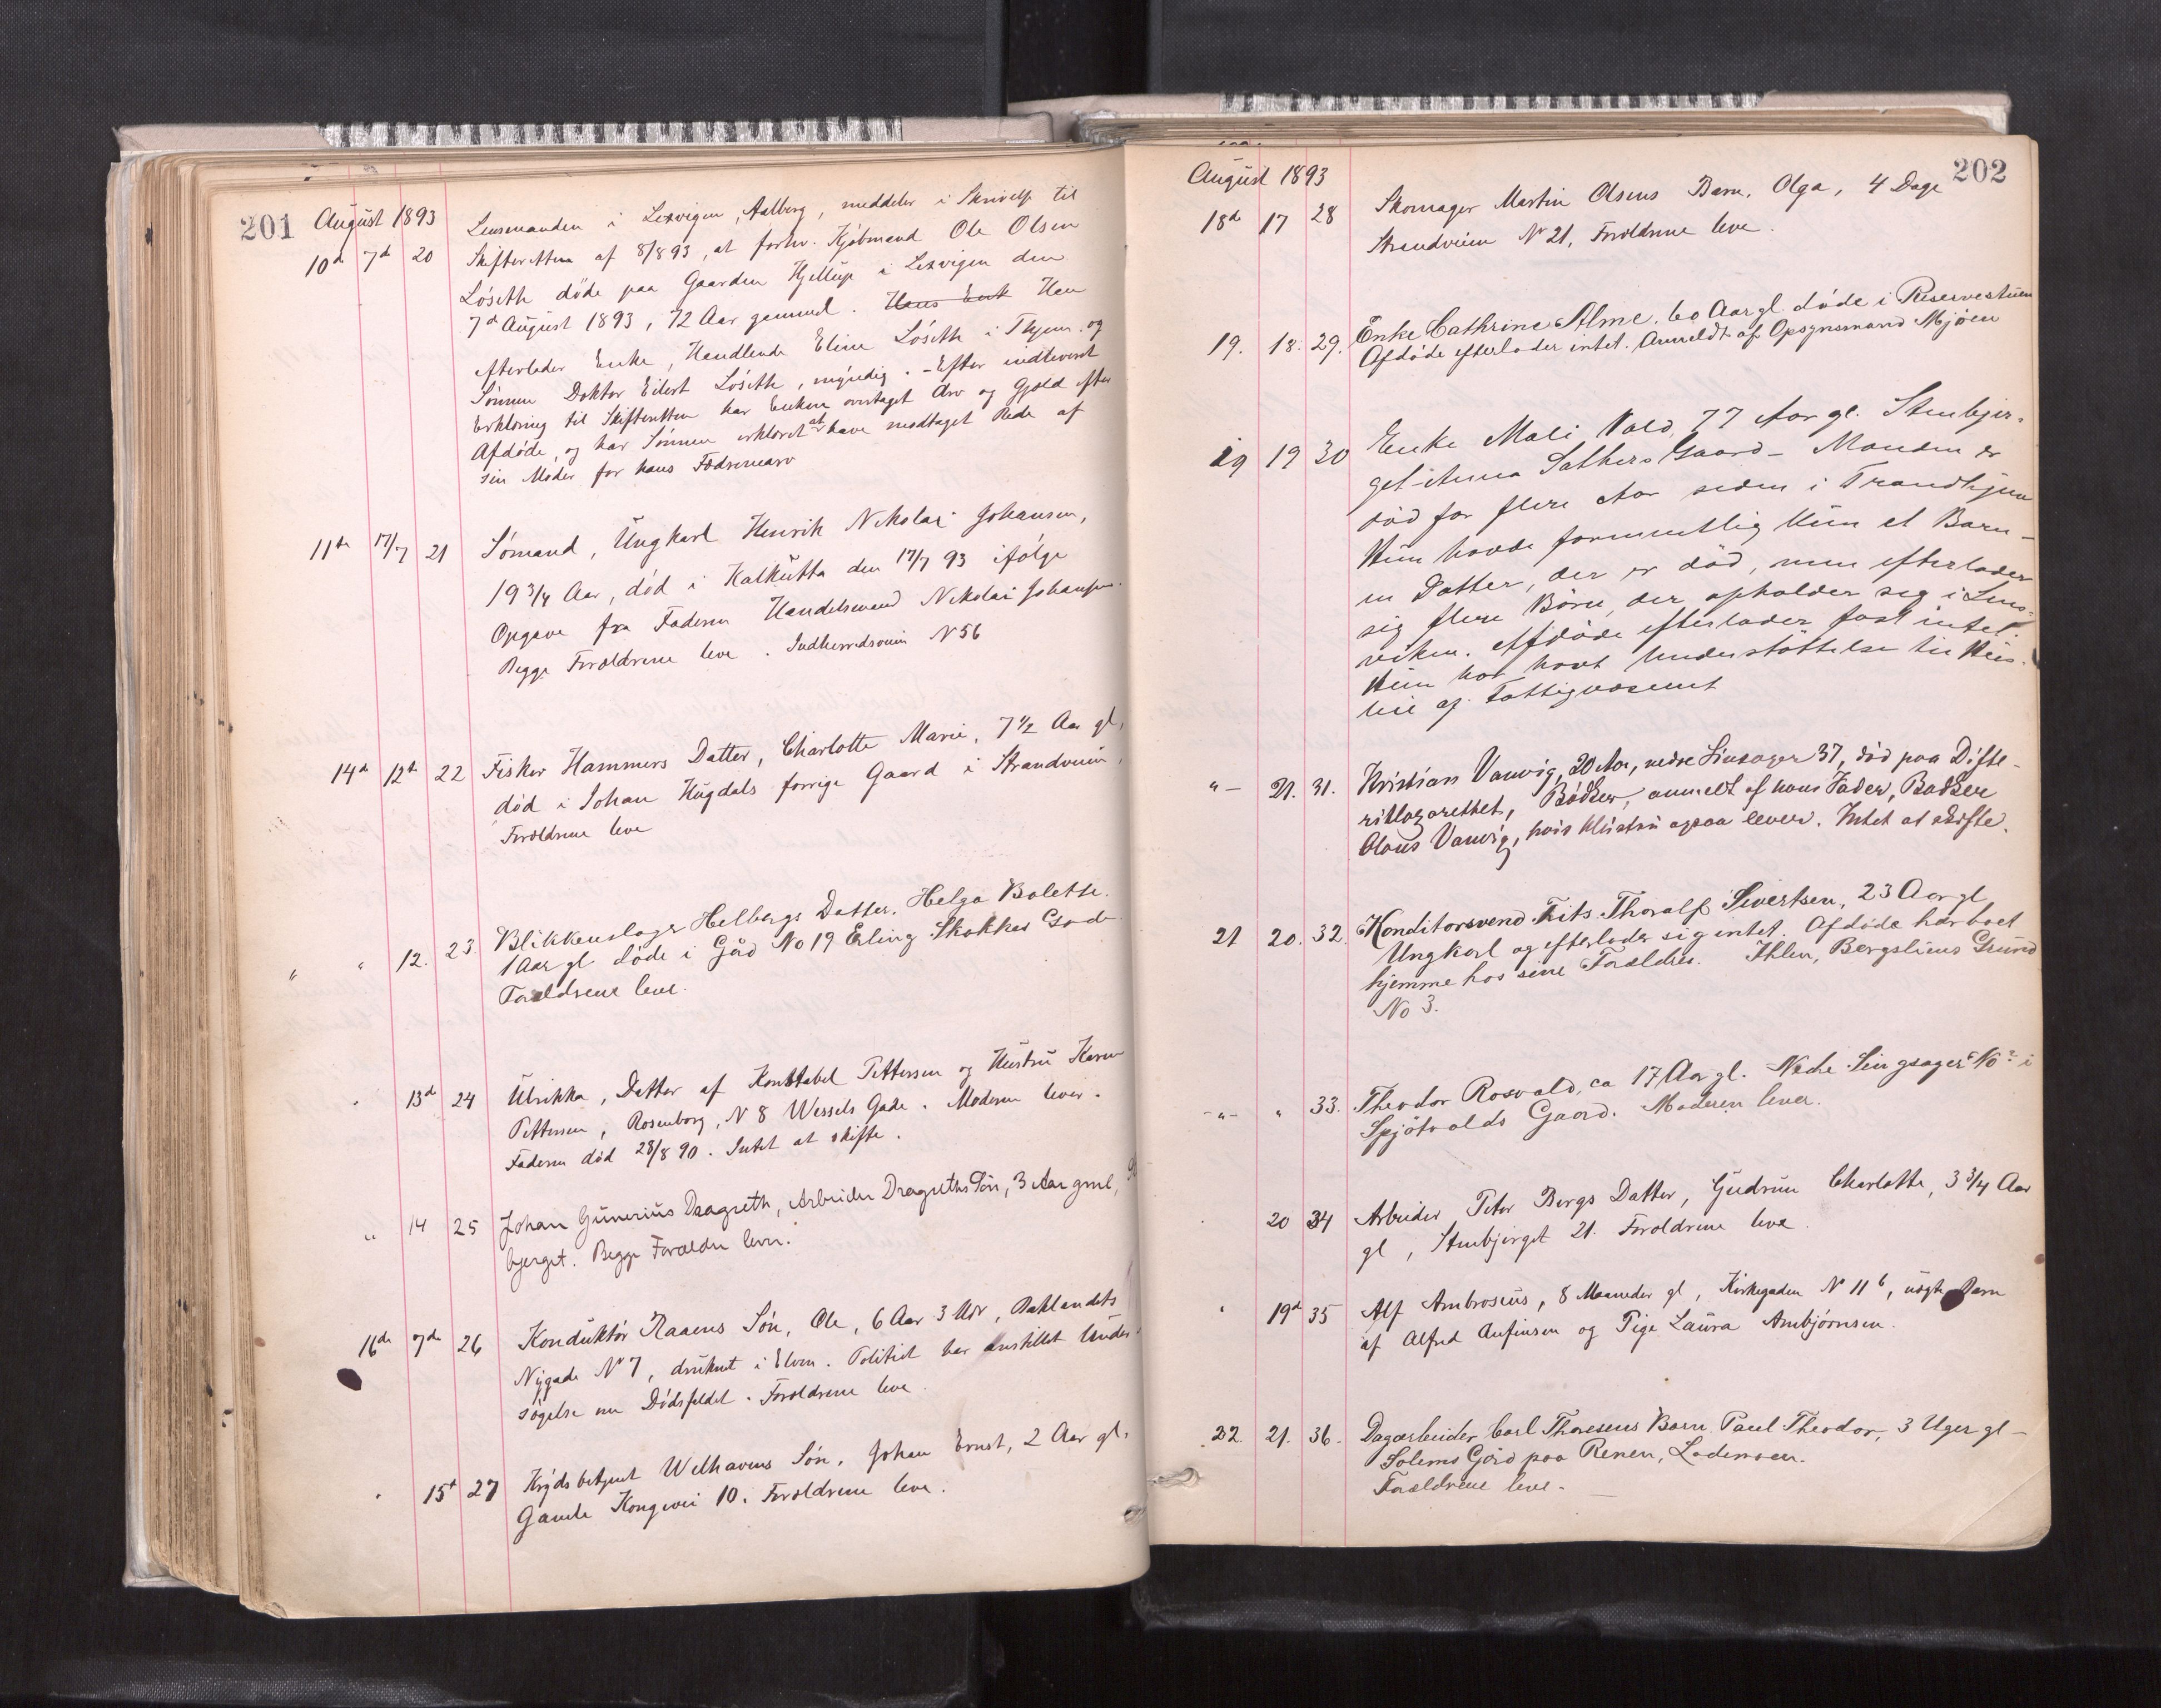 201 August 1893
10de 7de 20 Lensmanden i Lexvigen, Aalberg, meddeler i Skrivelse til
Skifteretten af 8/8 93, at forhv. Kjøbmand Ole Olsen
Løseth døde paa Gaarden Hjellup i Lexvigen den
7de August 1893, 72 Aar gammel. Hans Enk Han
efterlader Enke, Handlende Eline Løseth i Thjem. og
Sønnen Doktor Eilert Løseth, myndig. - Efter indleveret
Erklæring til Skifteretten har Enken overtaget Arv og Gjæld efter
Afdøde, og har Sønnen erklæret at have modtaget Rede af
sin Moder for hans Fædrenearv
11te 17/7 21 Sømand, Ungkarl Henrik Nikolai Johansen,
19 3/4 Aar, død i Kalkutta den 17/7 93 ifølge
Opgave fra Faderen Handelsmand Nikolai Johansen.
Begge Forældrene leve. Indherredsveien N 56
14de 12te 22 Fisker Hammers Datter, Charlotte Marie, 7 1/2 Aar gl,
død i Johan Hugdals forrige Gaard i Strandveien,
Forældrene leve
" " 12. 23. Blikkenslager Helbergs Datter, Helga Bolette.
1 Aar gl døde i Gård No 19 Erling Skakkes Gade
Forældrene leve.
" 13de 24 Ulrikka, Datter af Konstabel Pettersen og Hustru Karen
Pettersen, Rosenborg, N 8 Wessels Gade. Moderen lever.
Faderen død 28/8 90. Intet at skifte.
" 14 25 Johan Gunerius Dragseth, Arbeider Dragseths Søn, 3 Aar gml,
bjerget. Begge Forældre lever.
16de 7de 26 Konduktør Raaens Søn, Ole, 6 Aar 3 Mdr, Baklandets
Nygade N° 7, druknet i Elven. Politiet har anstillet Under-
søgelse om Dødsfaldet. Forældrene leve.
" 15de 27 Krydsbetjent Welhavens Søn, Johan Ernst, 2 Aar gl.
Gamle Kongevei 10. Forældrene leve.
202
August 1893
18de 17 28 Skomager Martin Olsens Barn, Olga, 4 Dage
Strandveien N° 21, Forældrene leve.
19. 18. 29. Enke Cathrine Alme. 60 Aar gl døde i Reservestuen
Afdøde efterlader intet. Anmeldt af Opsynsmand Mjøen
19 19 30 Enke Mali Vold, 77 Aar gl. Stenbjer-
get Anna Sathers Gaard - Manden er
død for flere Aar siden i Trondhjem
Hun havde formentlig kun et Barn -
en Datter, der er død, men efterlader
sig flere Børn, der opholder sig i Lens-
viken. Afdøde efterlader fast intet.
Hun har havt Understøttelse til Hus-
leie af Fattigvæsenet
" - 21. 31. Kristian Vanvig, 20 Aar, nedre Singsager 37, død paa Difte-
ritlazarettet, Bødker, anmeldt af hans Fader, Bødker
Olaus Vanvig, hvis Hustru ogsaa lever. Intet at skifte.
21 20. 32. Konditorsvend Frits Thoralf Sivertsen, 23 Aar gl
Ungkarl og efterlader sig intet. Afdøde har boet
hjemme hos sine Forældre. Ihlen, Bergsliens Grund
No 3.
- " - " 33. Theodor Rosvold, ca 17 Aar gl. Nedre Singsager No 2 i
Spjøtvolds Gaard. Moderen lever.
20 34 Arbeider Peter Bergs Datter, Gudrun Charlotte, 3 3/4 Aar
gl, Stenbjerget 21. Forældrene leve.
" 19de 35 Alf Ambrosius, 8 Maaneder gl, Kirkegaden N° 11 b, uægte Barn
af Alfred Anfinsen og Pige Laura Arnbjørnsen.
22. 21. 36. Dagarbeider Carl Thoresens Barn Paul Theodor, 3 Uger gl -
Solems Gård paa Renen, Lademoen.
Forældrene leve. -